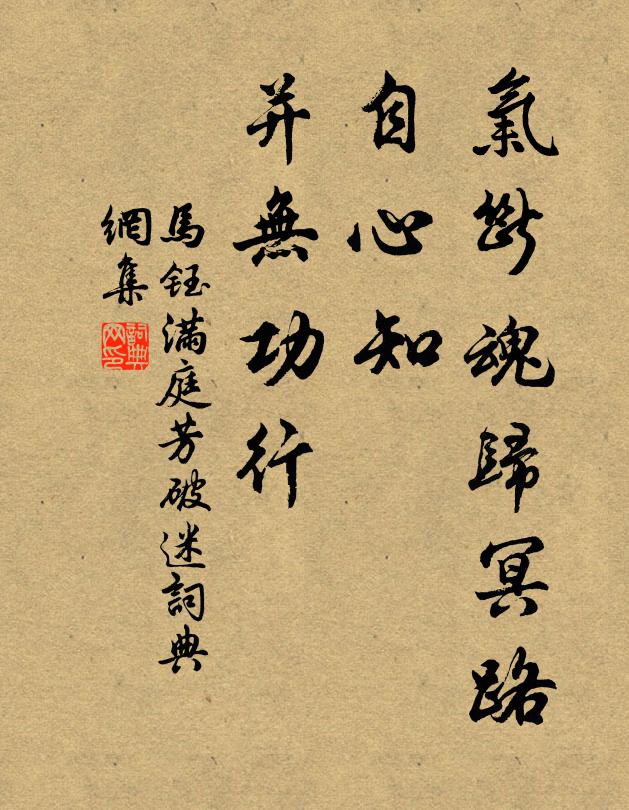 氣斷魂歸冥路
自心知
并無功行
馬鈺滿庭芳破迷詞典
網集
詞典網印